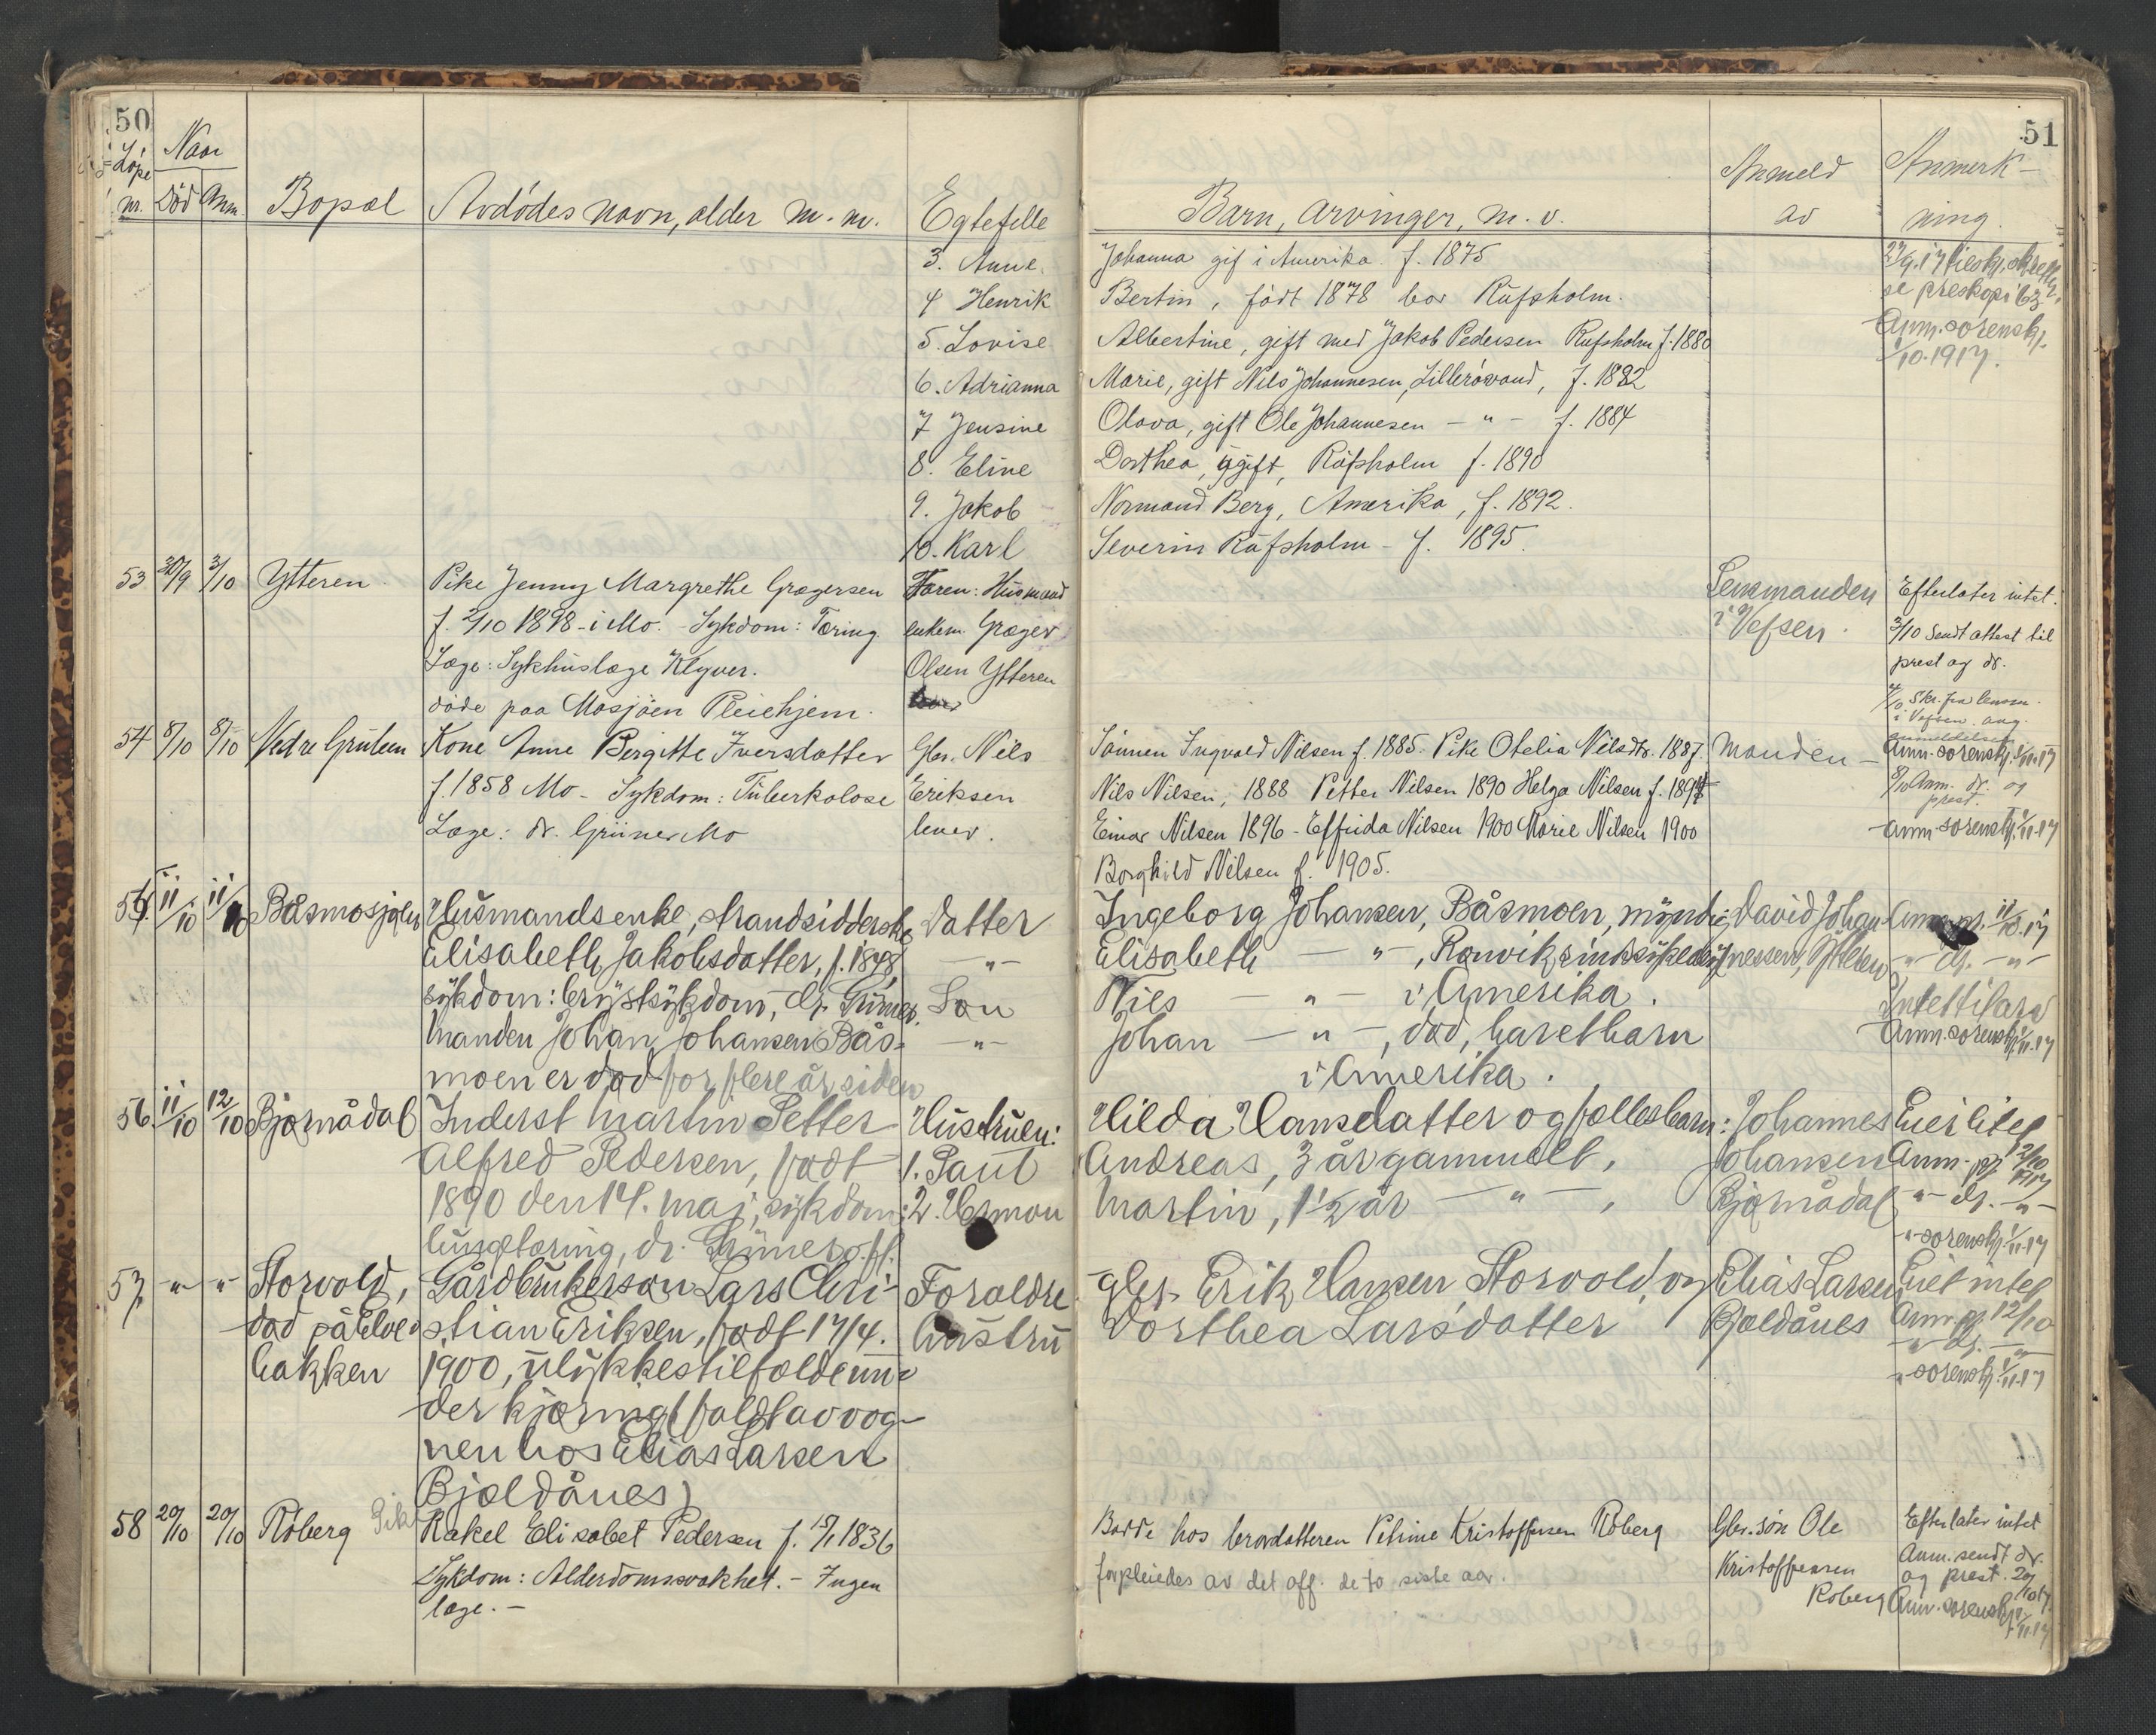 50
51
Löpe nr.
Naar
Död Anm.
Bopæl
Avdödes navn, alder m. m.
Egtefelle
Barn, arvinger, m. v.
Anmeld av
Anmerk-
ning
3. Anne Johanna gif i Amerika. f. 1875
4 Henrik Bertin, född 1878 bor Rufsholm.
5. Lovise Albertine, gift med Jakob Pedersen Rufsholm f. 1880
6. Adrianna Marie, gift Nils Johannesen, Lillerövand, f. 1882
7 Jensine Olava, gift Ole Johannesen - " - f. 1884
8. Eline Dorthea, ugift, Röfsholm f. 1890
9. Jakob Normand Berg, Amerika, f. 1892.
10. Karl Severin Röfsholm - f. 1895.
Anm. sorenskr.
1/10.1917.
53 30/9 3/10 Ytteren Pike Jenny Margrethe Grægersen Faren: Husmand Lensmanden Efterlater intet.
f. 2/10 1898 - i Mo. - Sykdom: Tæring. enkem. Græger i Vefsen. 3/10 Sendt attest til
Læge: Sykhuslæge Klyver. Olsen Ytteren prest og dr.
döde paa Mosjöen Pleiehjem. 4/10 Skr. fra lensm.
i Vefsen ang.
anmeldelsen
54 8/10 8/10 Nedre Grubem Kone Anne Bergitte Iversdatter Gbr. Nils Sönnen Ingvald Nilsen f. 1885. Pike Otelia Nilsdtr. 1887. Manden - Anm. sorenskr. 1/11.17
f. 1858 Mo - Sykdom: Tuberkolose Eriksen Nils Nilsen, 1888 Petter Nilsen 1890 Helga Nilsen f. 1894 8/10 Anm. dr. og
prest.
Læge: dr. Grüner Mo lever. Einar Nilsen 1896 - Effrida Nilsen 1900 Marie Nilsen 1900 Anm. sorenskr. 1/11.17
Borghild Nilsen f. 1905.
55. 11/10 11/10 Båsmosjøen Husmandsenke, strandsidderske Datter Ingeborg Johansen, Båsmoen, myndig, David Johan- Anm. pr. 11/10.17
Elisabeth Jakobsdatter, f. 1848, - " - Elisabeth - " -, Rønvik sindssykeasyl nessen, Ytteren - " - dr. - " -
sykdom: brystsykdom, dr. Grüner. Søn Nils - " - i Amerika. Intet tilard
Manden Johan Johansen Bås- - " - Johan - " -, død, har et barn Anm. sorenskr. 1/11.17
moen er død for flere år siden i Amerika.
56. 11/10 12/10 Bjørnådal Inderst Martin Petter Hustruen: Hilda Hansdatter og fællesbarn: Johannes Eier litet
Alfred Pedersen, født 1. Paul Andreas, 3 år gammelt, Johansen Anm. pr. 12/10 1917
1890 den 14. maj, sykdom: 2. Hermon Martin, 1 1/2 år - " -, Bjørnådal - " - dr. - " -
lungetæring, dr. Grüner o.fl. - " - sorenskr. 1/11.17
57, - " - " Storvold, Gårdbrukersøn Lars Chri- Foræld­re gbr. Erik Hansen Storvold, og Elias Larsen Eiet intet
død på Elve- stian Eriksen, født 17/4. hustru Dorthea Larsdatter Bjeldånes Anm. pr. 12/10
bakken 1900, ulykkestilfælde un- - " - dr. - " -
der kjøring (faldt av vog- - " - sorenskr. 1/11.17
nen hos Elias Larsen
Bjeldånes)
58 20/10 20/10 Röberg Pike Rakel Elisabet Pedersen f. 15/1 1836 Bodde hos brordatteren Petrine Kristoffersen Röberg Gbr. sön Ole Efterlater intet
Sykdom: Alderdomssvakhet. - Ingen forpleiedes av det off. de to siste aar. Kristoffersen Anm. sendt dr.
læge. - Röberg og prest. 20/10 17.
Anm. sorenskr. 1/11.17